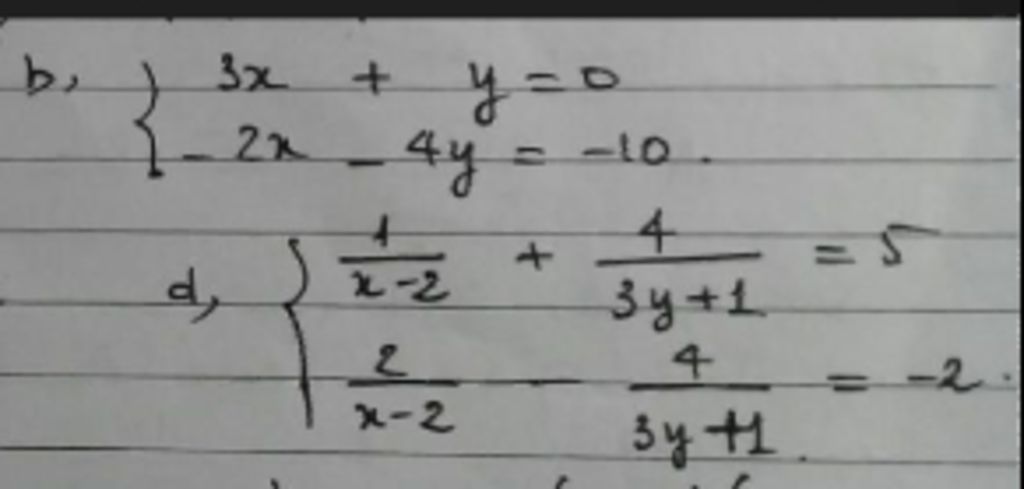 b, { 3x + y = 0
- 2x - 4y = -10.
d, { 1/(x-2) + 4/(3y+1) = 5
2/(x-2) - 4/(3y+1) = -2.